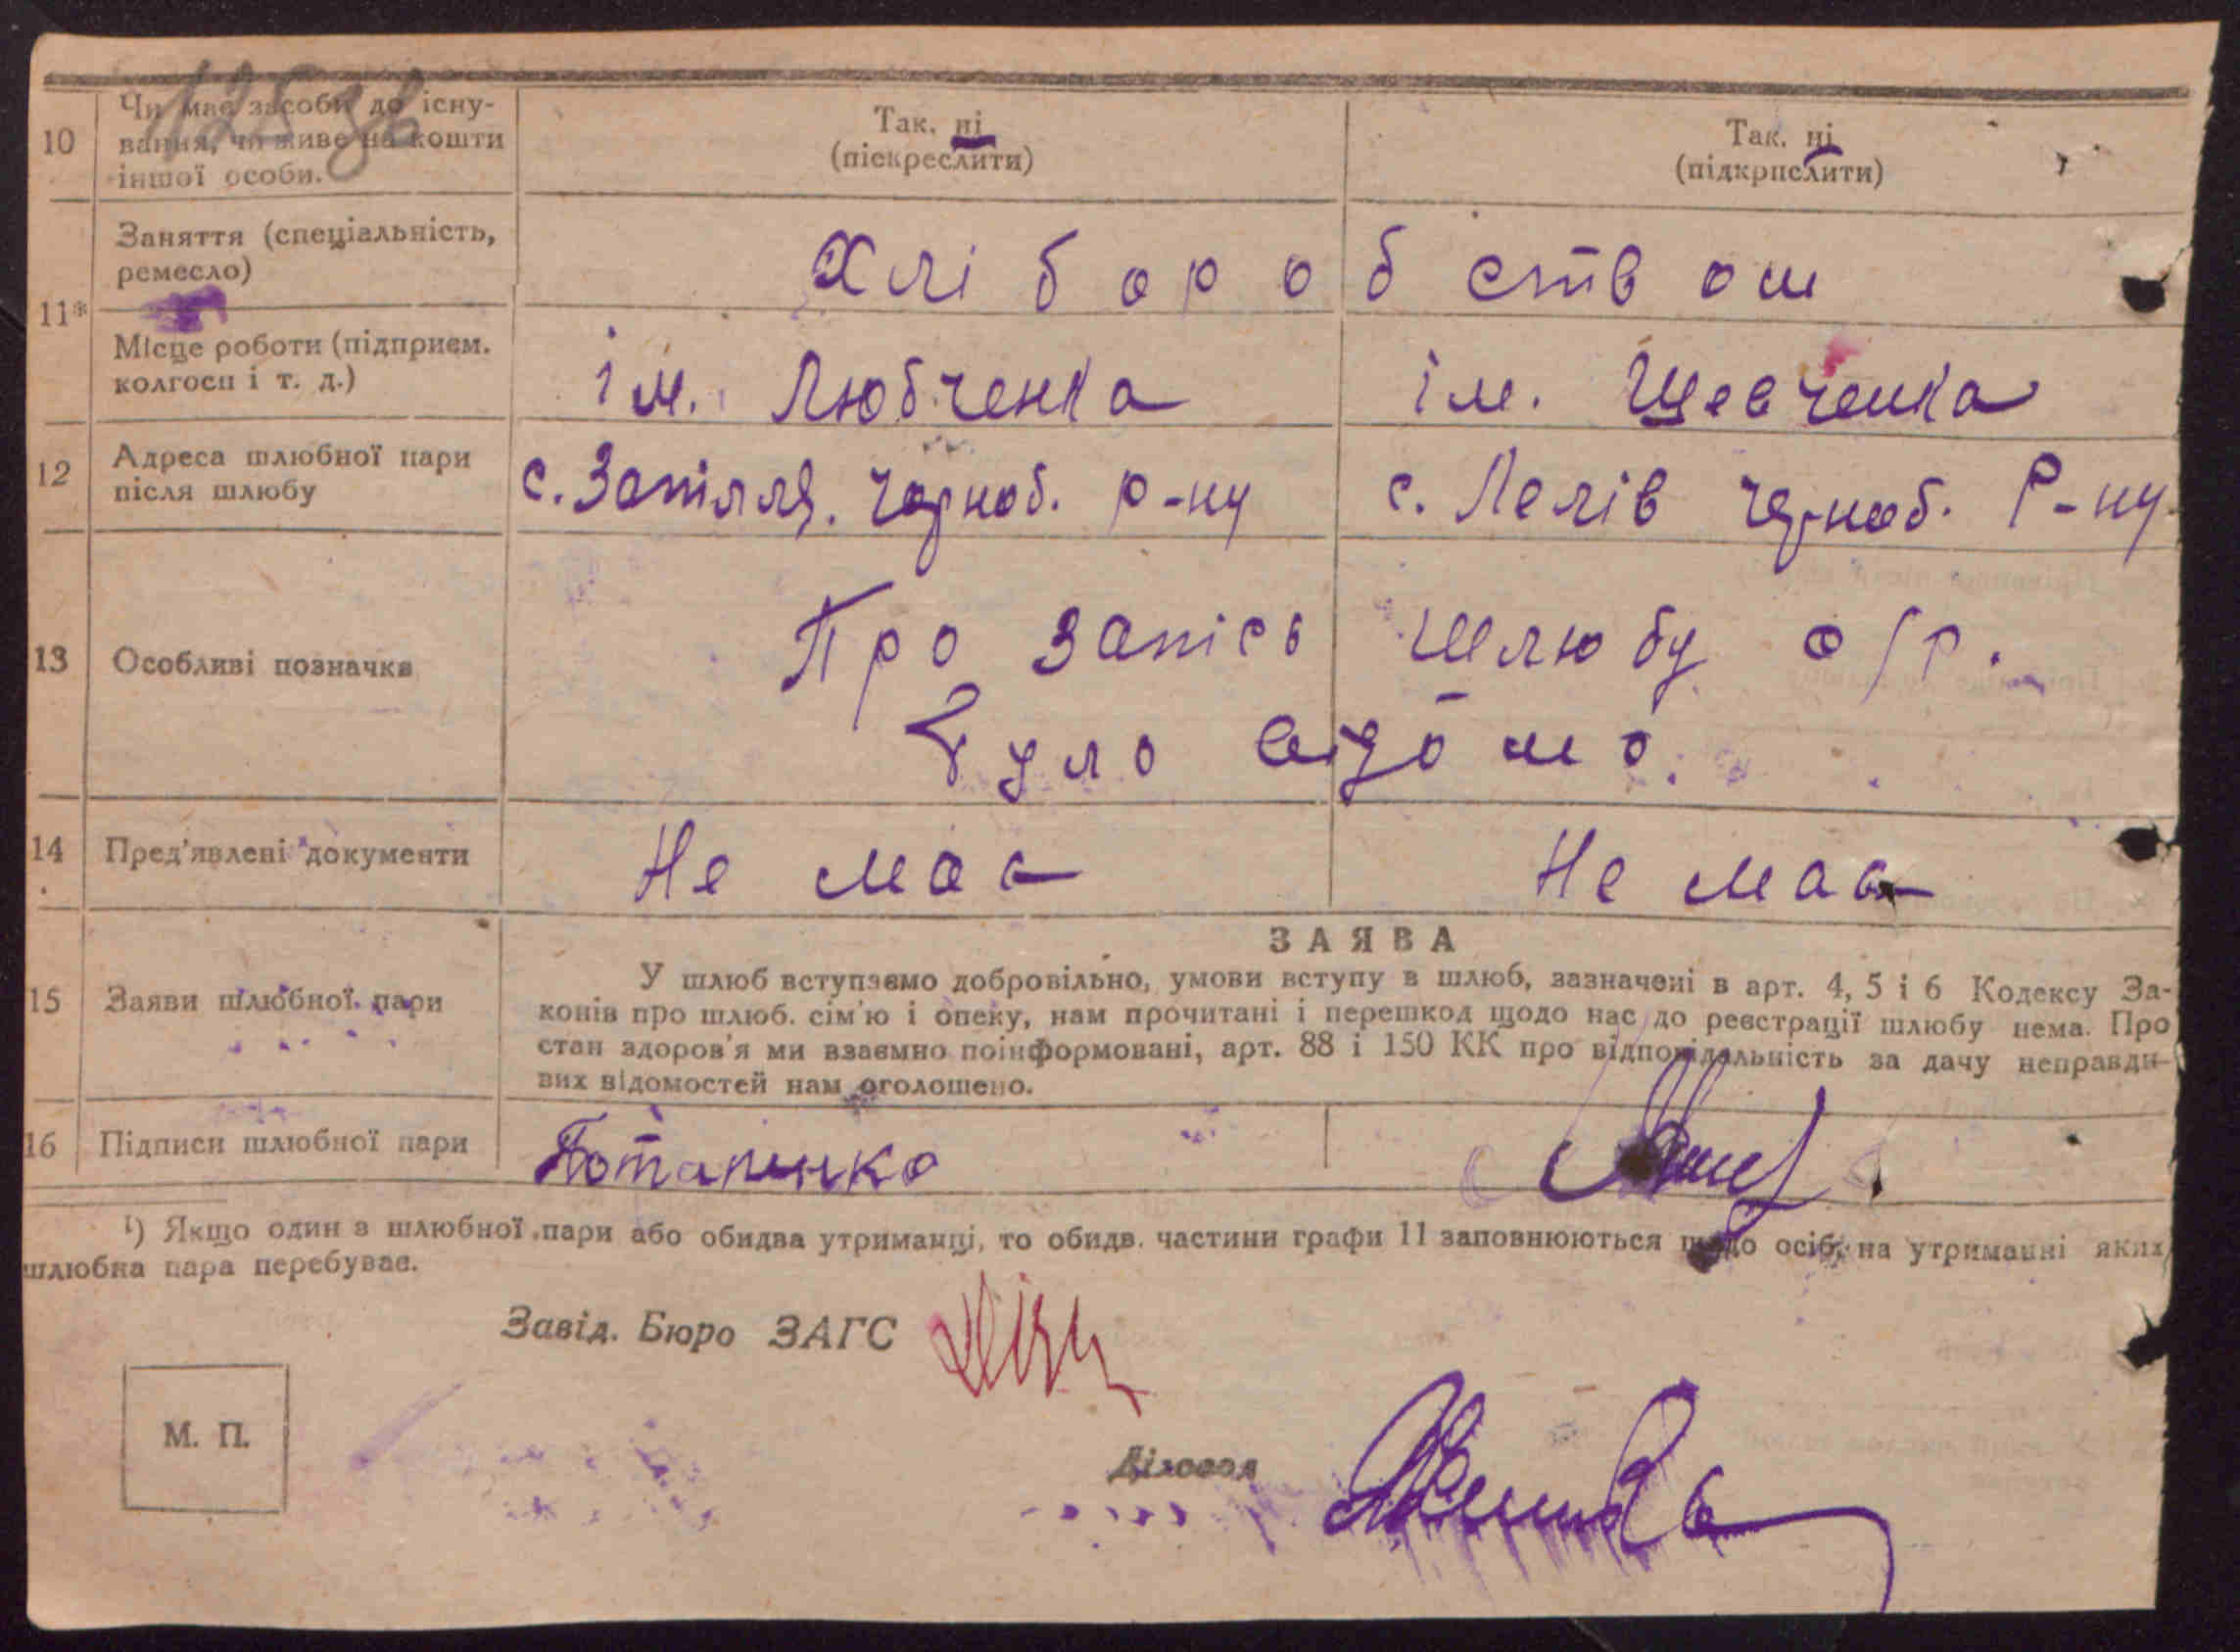 125 зв
10
Чи має засоби до існу-
вання, чи живе на кошти
іншої особи.
Так, ні
(піскреслити)
Так, ні
(підкрпслити)
11*
Заняття (спеціальність,
ремесло)
Хліборобством
Місце роботи (підприєм.
колгосп і т. д.)
ім. Любченка
ім. Шевченка
12
Адреса шлюбної пари
після шлюбу
с. Запілля. Чорноб. р-ну
с. Лелів Чорноб. Р-ну
13
Особливі позначки
Про запісь шлюбу
було відомо.
14
Пред'явлені документи
Не має
Не має
15
Заяви шлюбної пари
ЗАЯВА
У шлюб вступаємо добровільно, умови вступу в шлюб, зазначені в арт. 4, 5 і 6 Кодексу За-
конів про шлюб. сім'ю і опеку, нам прочитані і перешкод щодо нас до реєстрації шлюбу нема. Про
стан здоров'я ми взаємно поінформовані, арт. 88 і 150 КК про відповідальність за дачу неправди-
вих відомостей нам оголошено.
16
Підписи шлюбної пари
Потапенко
1) Якщо один з шлюбної пари або обидва утриманці, то обидв. частини графи 11 заповнюються щодо осіб, на утриманні яких
шлюбна пара перебуває.
Завід. Бюро ЗАГС
М. П.
Діловод